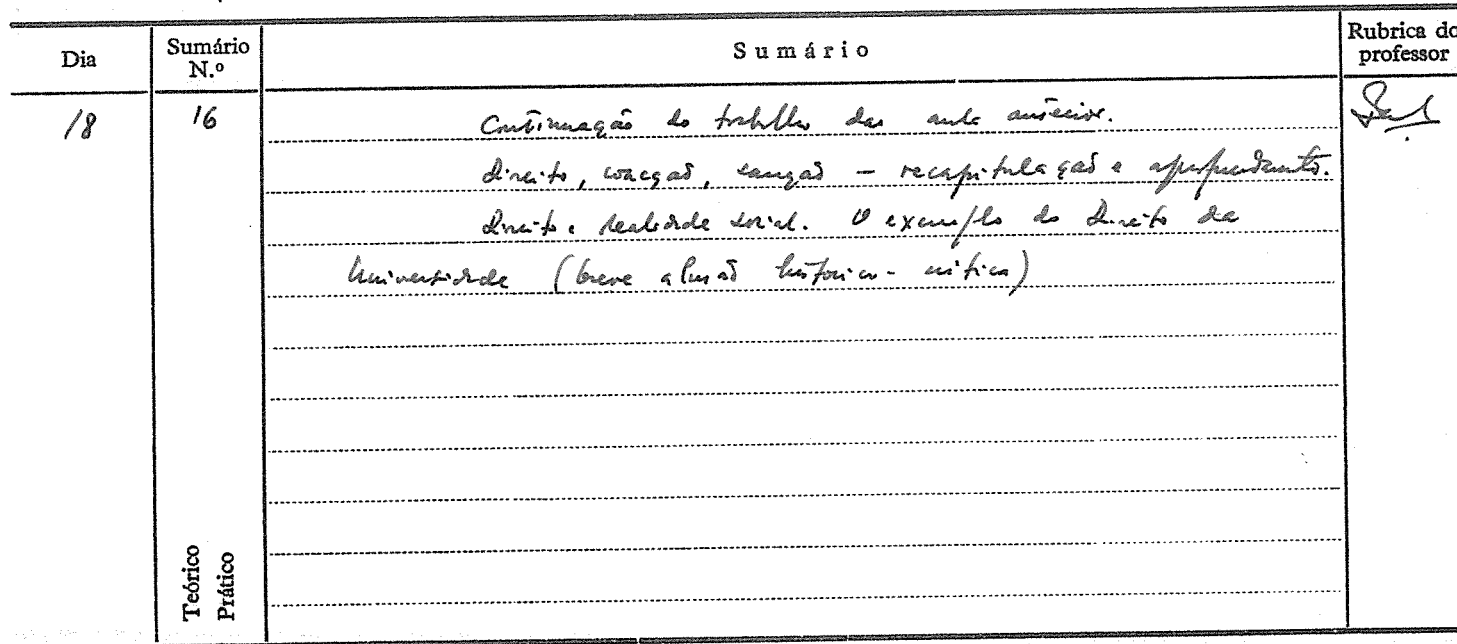 Dia
Sumário N.º
Sumário
Rubrica do professor
18
16
Continuação do trabalho da aula anterior.
Direito, coacção, sanção – recapitulação e aprofundamento.
Direito e realidade social. O exemplo do Direito da
Universidade (breve alusão histórico-crítica)
Teórico
Prático